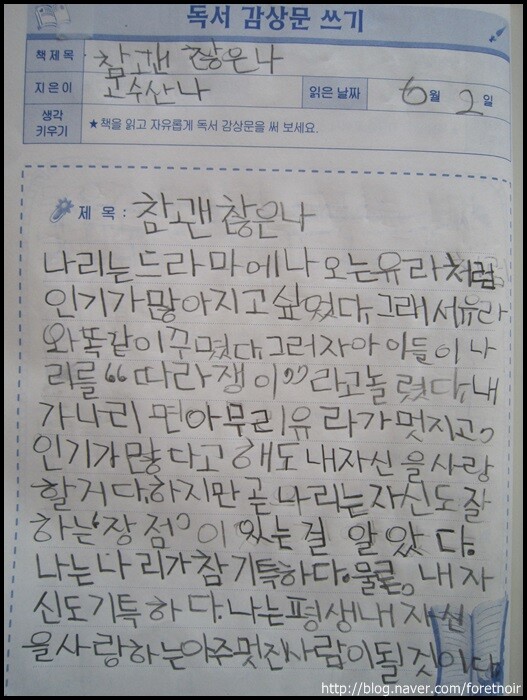 독서 감상문 쓰기
책 제목 참 괜찮은 나
지은이 고수산나 읽은 날짜 6월 2일
생각 키우기 ★책을 읽고 자유롭게 독서 감상문을 써 보세요.
제 목 : 참 괜찮은 나
나리는 드라마에 나오는 유라처럼
인기가 많아지고 싶었다. 그래서 유라
와 똑같이 꾸몄다. 그러자 아이들이 나
리를 “따라쟁이” 라고 놀렸다. 내
가 나리면 아무리 유라가 멋지고,
인기가 많다고 해도 내 자신을 사랑
할 거다. 하지만 곧 나리는 자신도 잘
하는 ‘장점’이 있는 걸 알았다.
나는 나리가 참 기특하다. 물론, 내 자
신도 기특하다. 나는 평생 내 자신
을 사랑하는 아주 멋진 사람이 될 것이다
http://blog.naver.com/forethoir